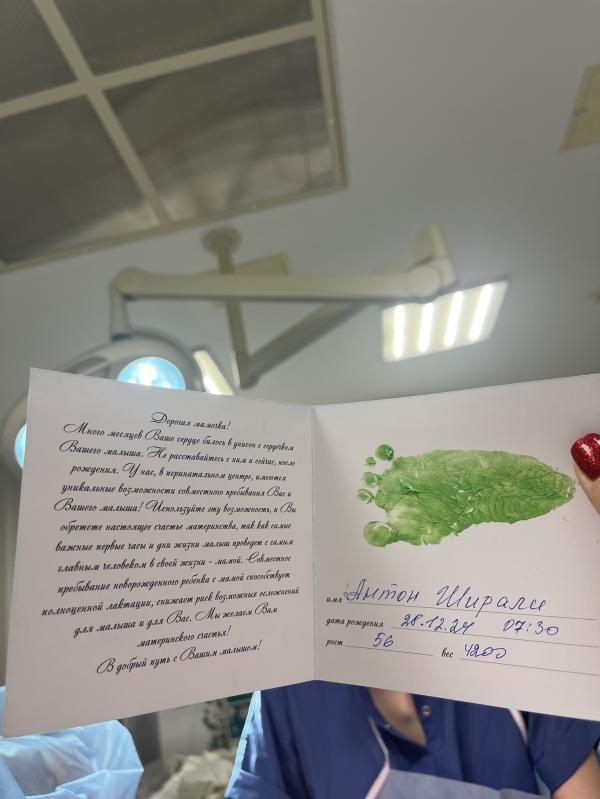 Дорогая мамочка!
Много месяцев Ваше сердце билось в унисон с сердечком
Вашего малыша. Не расставайтесь с ним и сейчас, после
рождения. У нас, в перинатальном центре, имеются
уникальные возможности совместного пребывания Вас и
Вашего малыша! Используйте эту возможность, и Вы
обретете настоящее счастье материнства, так как самые
важные первые часы и дни жизни малыш проведет с самым
главным человеком в своей жизни - мамой. Совместное
пребывание новорожденного ребенка с мамой способствует
полноценной лактации, снижает риск возможных осложнений
для малыша и для Вас. Мы желаем Вам
материнского счастья!
В добрый путь с Вашим малышом!
имя Антон Ширали
дата рождения 28.12.24 07:30
рост 56 вес 4200